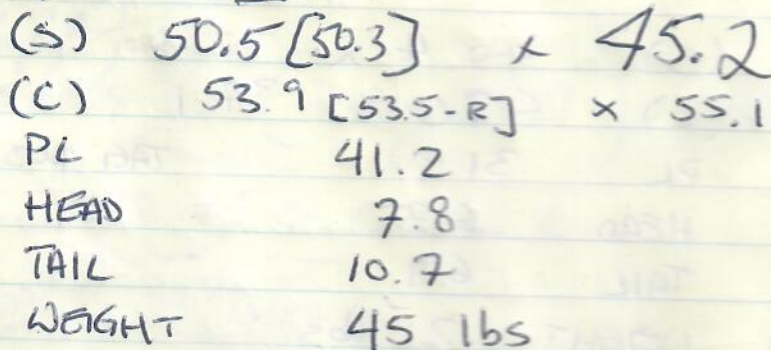 (S) 50.5 [50.3] x 45.2
(C) 53.9 [53.5-R] x 55.1
PL 41.2
HEAD 7.8
TAIL 10.7
WEIGHT 45 lbs